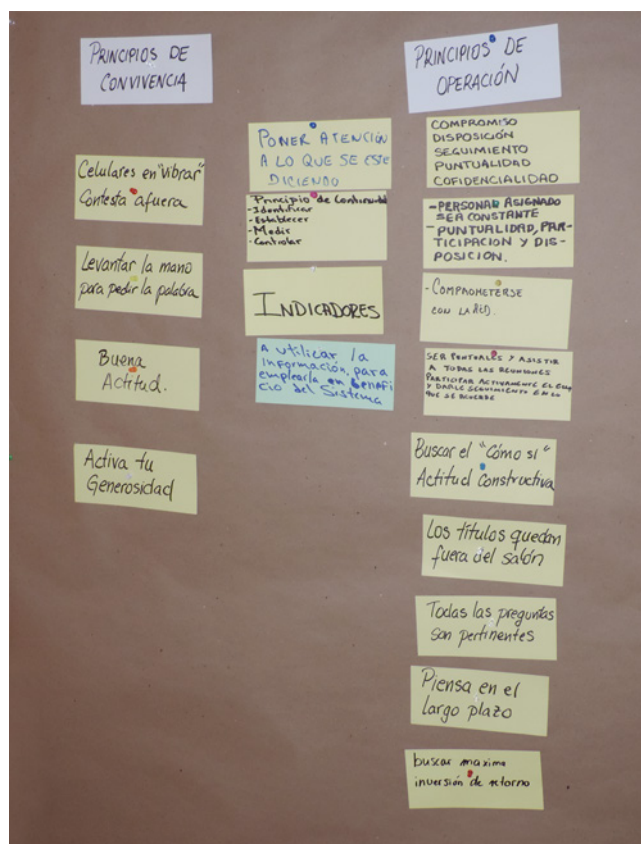 PRINCIPIOS DE
CONVIVENCIA
Celulares en "vibrar"
Contesta afuera
Levantar la mano
para pedir la palabra
Buena
Actitud.
Activa tu
Generosidad
PONER ATENCIÓN
A LO QUE SE ESTE
DICIENDO
Principio de Continuidad
- Identificar
- Establecer
- Medir
- Controlar
INDICADORES
A utilizar la
información, para
emplearla en benefi
cio del Sistema
PRINCIPIOS DE
OPERACIÓN
COMPROMISO
DISPOSICIÓN
SEGUIMIENTO
PUNTUALIDAD
COFIDENCIALIDAD
- PERSONAL ASIGNADO
SEA CONSTANTE
- PUNTUALIDAD, PAR-
TICIPACION Y DIS-
POSICION.
- COMPROMETERSE
CON LA RED.
SER PUNTUALES Y ASISTIR
A TODAS LAS REUNIONES
PARTICIPAR ACTIVAMENTE EL
Y DARLE SEGUIMIENTO EN LO
QUE SE ACUERDE
Buscar el "Cómo si"
Actitud Constructiva
Los títulos quedan
fuera del salón
Todas las preguntas
son pertinentes
Piensa en el
largo plazo
buscar maxima
inversión de retorno